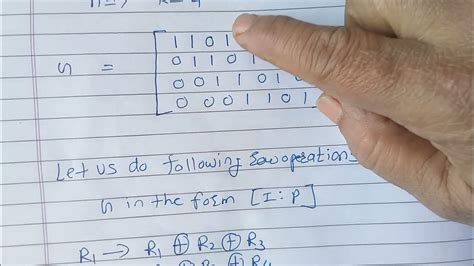 G = 1 1 0 1
0 1 1 0 1
0 0 1 1 0 1 0
0 0 0 1 1 0 1
Let us do following row operation
G in the form [I : P]
R1 → R1 ⊕ R2 ⊕ R3
⊕ R4